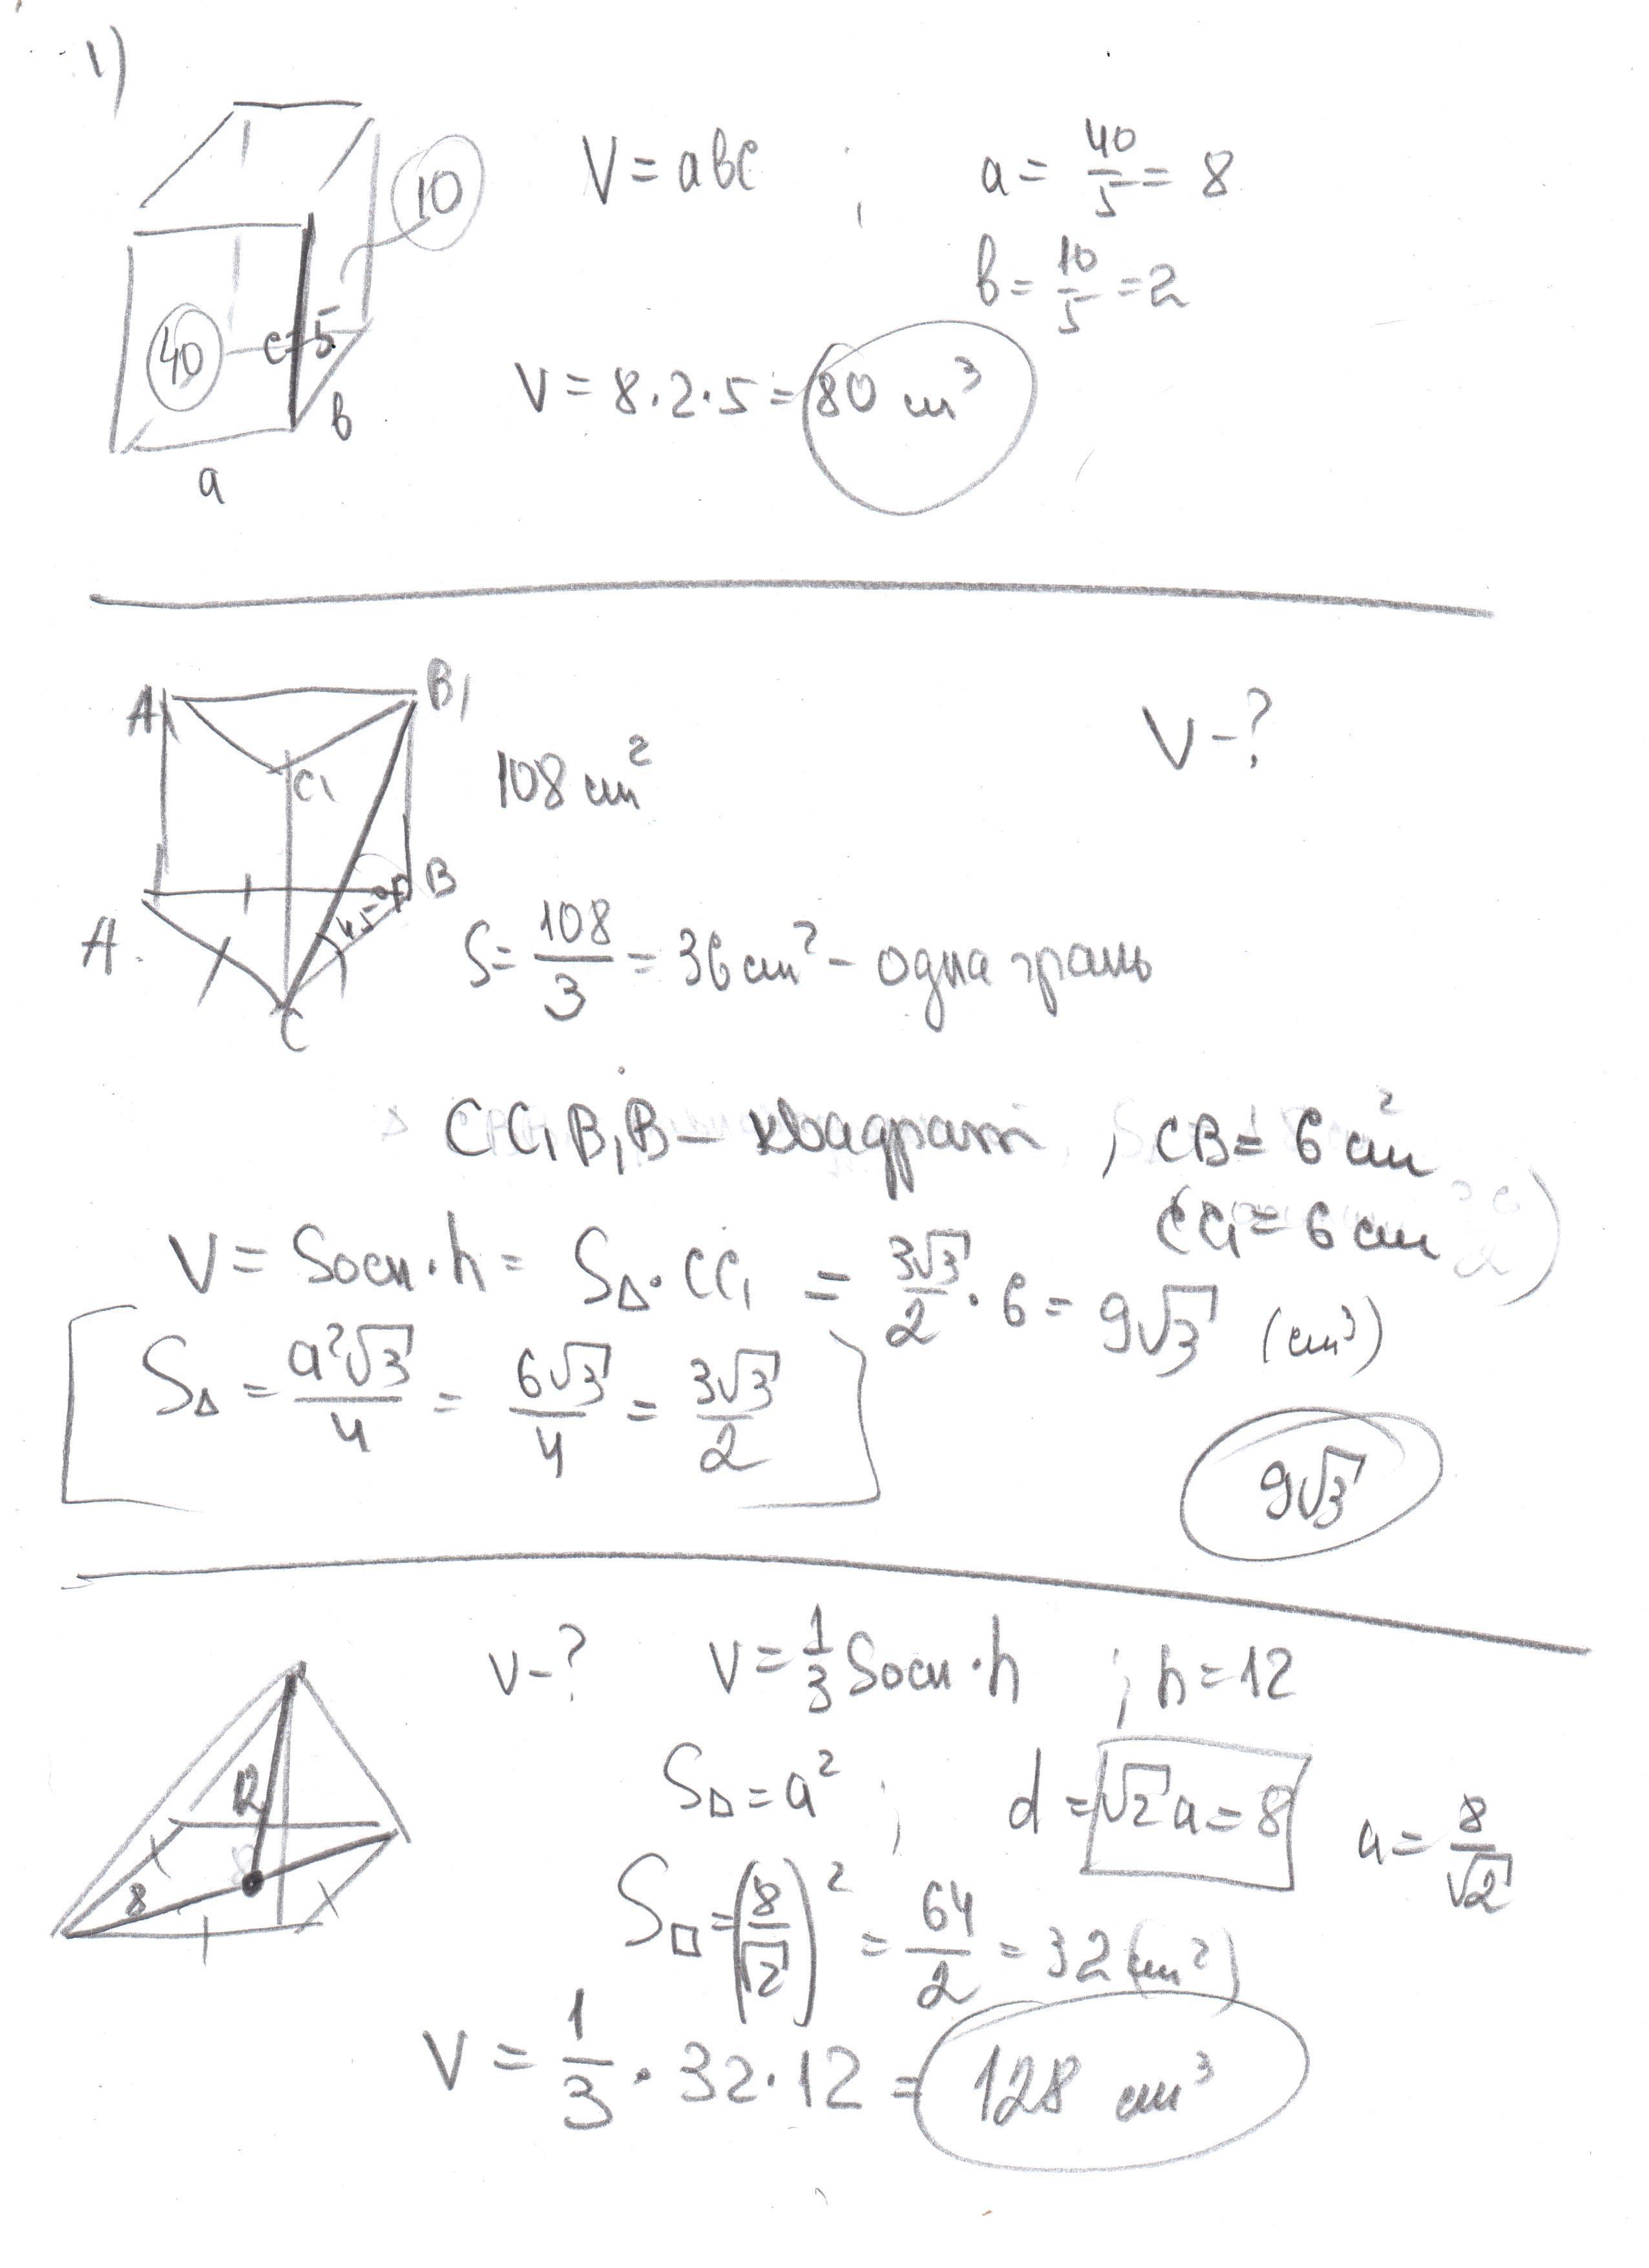 1)
10
V = abc ; a = 40/5 = 8
b = 10/5 = 2
40
c = 5
b
a
V = 8·2·5 = 80 см³
A
B₁
V - ?
C₁
108 см²
B
45°
A
C
S = 108/3 = 36 см² - одна грань
CC₁B₁B – квадрат , CB = 6 см²
CC₁ = 6 см
V = Sосн·h = S△·CC₁ = 3√3/2 · 6 = 9√3 (см³)
S△ = a²√3/4 = 6√3/4 = 3√3/2
9√3
V - ? V = 1/3 Sосн·h ; h = 12
12
S□ = a² ; d = √2 a = 8 a = 8/√2
8
S□ = (8/√2)² = 64/2 = 32 (см²)
V = 1/3 · 32·12 = 128 см³